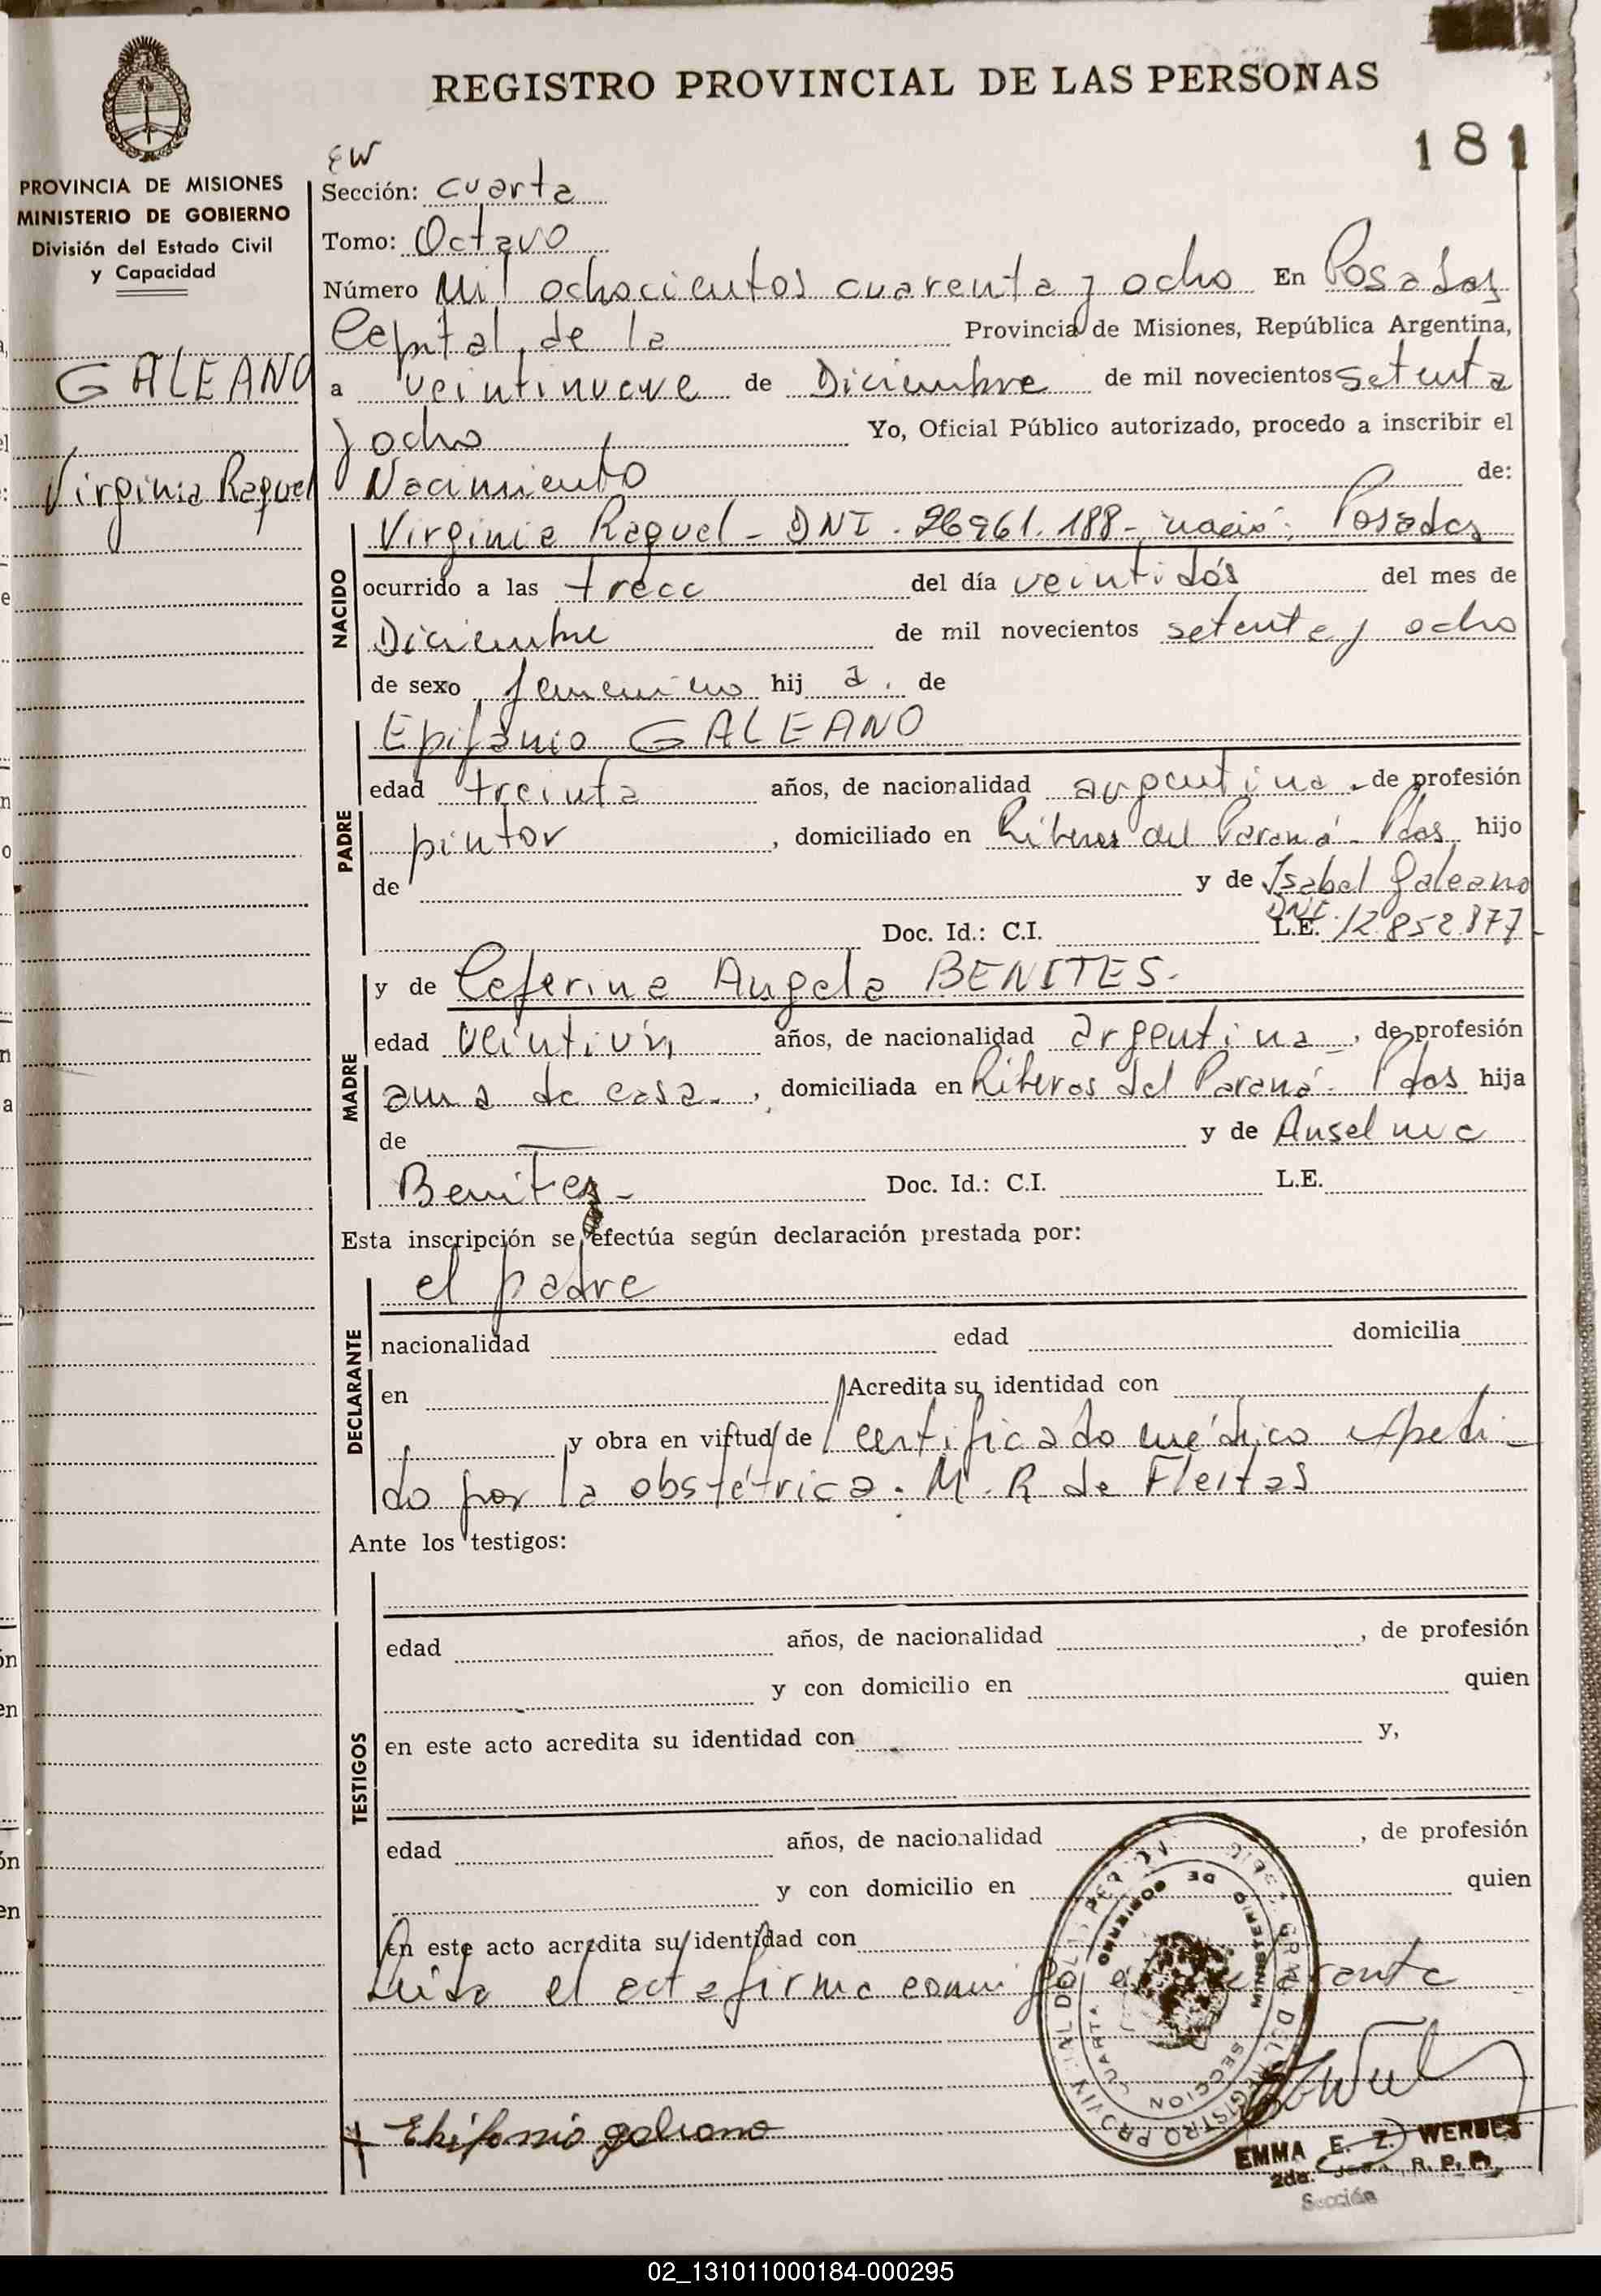 REGISTRO PROVINCIAL DE LAS PERSONAS
181
PROVINCIA DE MISIONES
MINISTERIO DE GOBIERNO
División del Estado Civil
y Capacidad
GALEANO
Virginia Raquel
EW
Sección: cuarta
Tomo: Octavo
Número Mil ochocientos cuarenta y ocho En Posadas
Capital de la Provincia de Misiones, República Argentina,
a veintinueve de Diciembre de mil novecientos setenta
y ocho Yo, Oficial Público autorizado, procedo a inscribir el
Nacimiento de:
NACIDO
Virginia Raquel - DNI. 26961.188 - nació: Posadas
ocurrido a las trece del día veintidós del mes de
Diciembre de mil novecientos setenta y ocho
de sexo femenino hij a. de
PADRE
Epifanio GALEANO
edad treinta años, de nacionalidad argentina. de profesión
pintor, domiciliado en Riberas del Paraná - Pdas hijo
de y de Isabel Galeano
Doc. Id.: C.I. L.E. DNI. 12.852.877-
MADRE
y de Ceferina Angela BENITES.
edad veintiún años, de nacionalidad argentina, de profesión
ama de casa., domiciliada en Riberas del Paraná - Pdas hija
de — y de Anselma
Benites - Doc. Id.: C.I. L.E.
Esta inscripción se efectúa según declaración prestada por:
DECLARANTE
el padre
nacionalidad edad domicilia
en Acredita su identidad con
y obra en virtud de certificado médico expedi-
do por la obstétrica. M. R de Fleitas
Ante los testigos:
TESTIGOS
edad años, de nacionalidad , de profesión
y con domicilio en quien
en este acto acredita su identidad con y,
edad años, de nacionalidad , de profesión
y con domicilio en quien
en este acto acredita su identidad con
Leída el acta firma conmigo
MINISTERIO DE GOBIERNO
SECCION CUARTA
Epifanio galeano
EMMA E. Z. WERBES
2da. Jefa R. P. P.
Sección
02_131011000184-000295